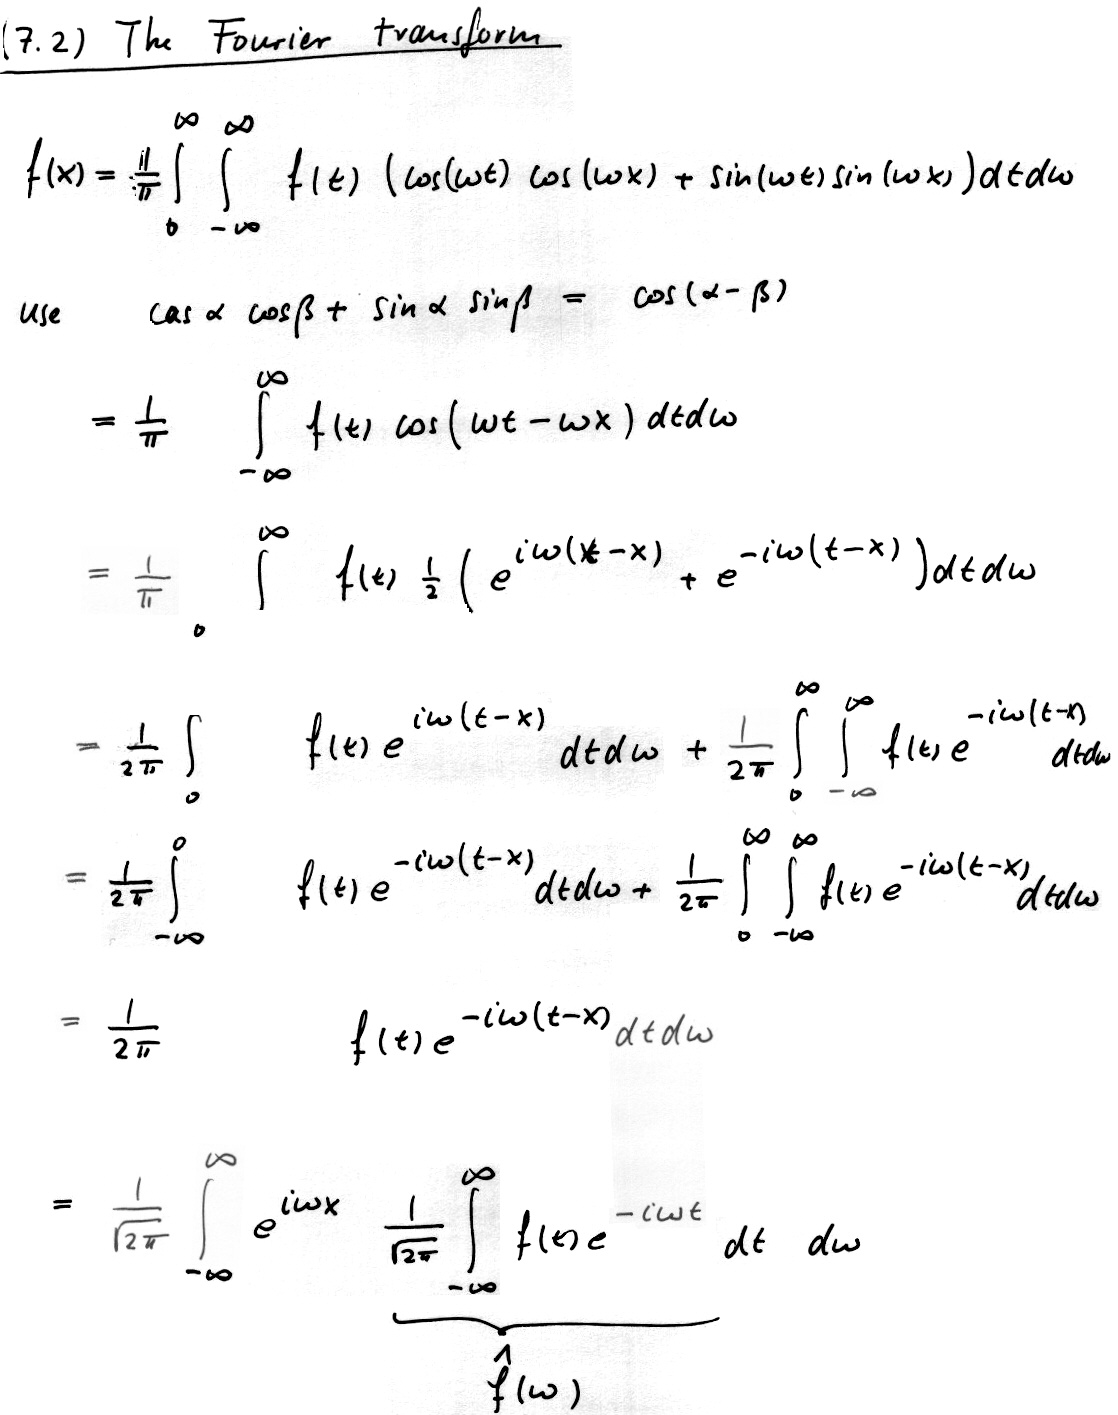 (7.2) The Fourier transform
f(x) = 1/π ∫_0^∞ ∫_{-∞}^∞ f(t) (cos(ωt) cos(ωx) + sin(ωt) sin(ωx)) dt dω
use cos α cos β + sin α sin β = cos(α - β)
= 1/π ∫_{-∞}^∞ f(t) cos(ωt - ωx) dt dω
= 1/π _0 ∫^∞ f(t) 1/2 (e^{iω(t-x)} + e^{-iω(t-x)}) dt dω
= 1/2π ∫_0 f(t) e^{iω(t-x)} dt dω + 1/2π ∫_0^∞ ∫_{-∞}^∞ f(t) e^{-iω(t-x)} dt dω
= 1/2π ∫_{-∞}^0 f(t) e^{-iω(t-x)} dt dω + 1/2π ∫_0^∞ ∫_{-∞}^∞ f(t) e^{-iω(t-x)} dt dω
= 1/2π f(t) e^{-iω(t-x)} dt dω
= 1/√2π ∫_{-∞}^∞ e^{iωx} 1/√2π ∫_{-∞}^∞ f(t) e^{-iωt} dt dω
f̂(ω)